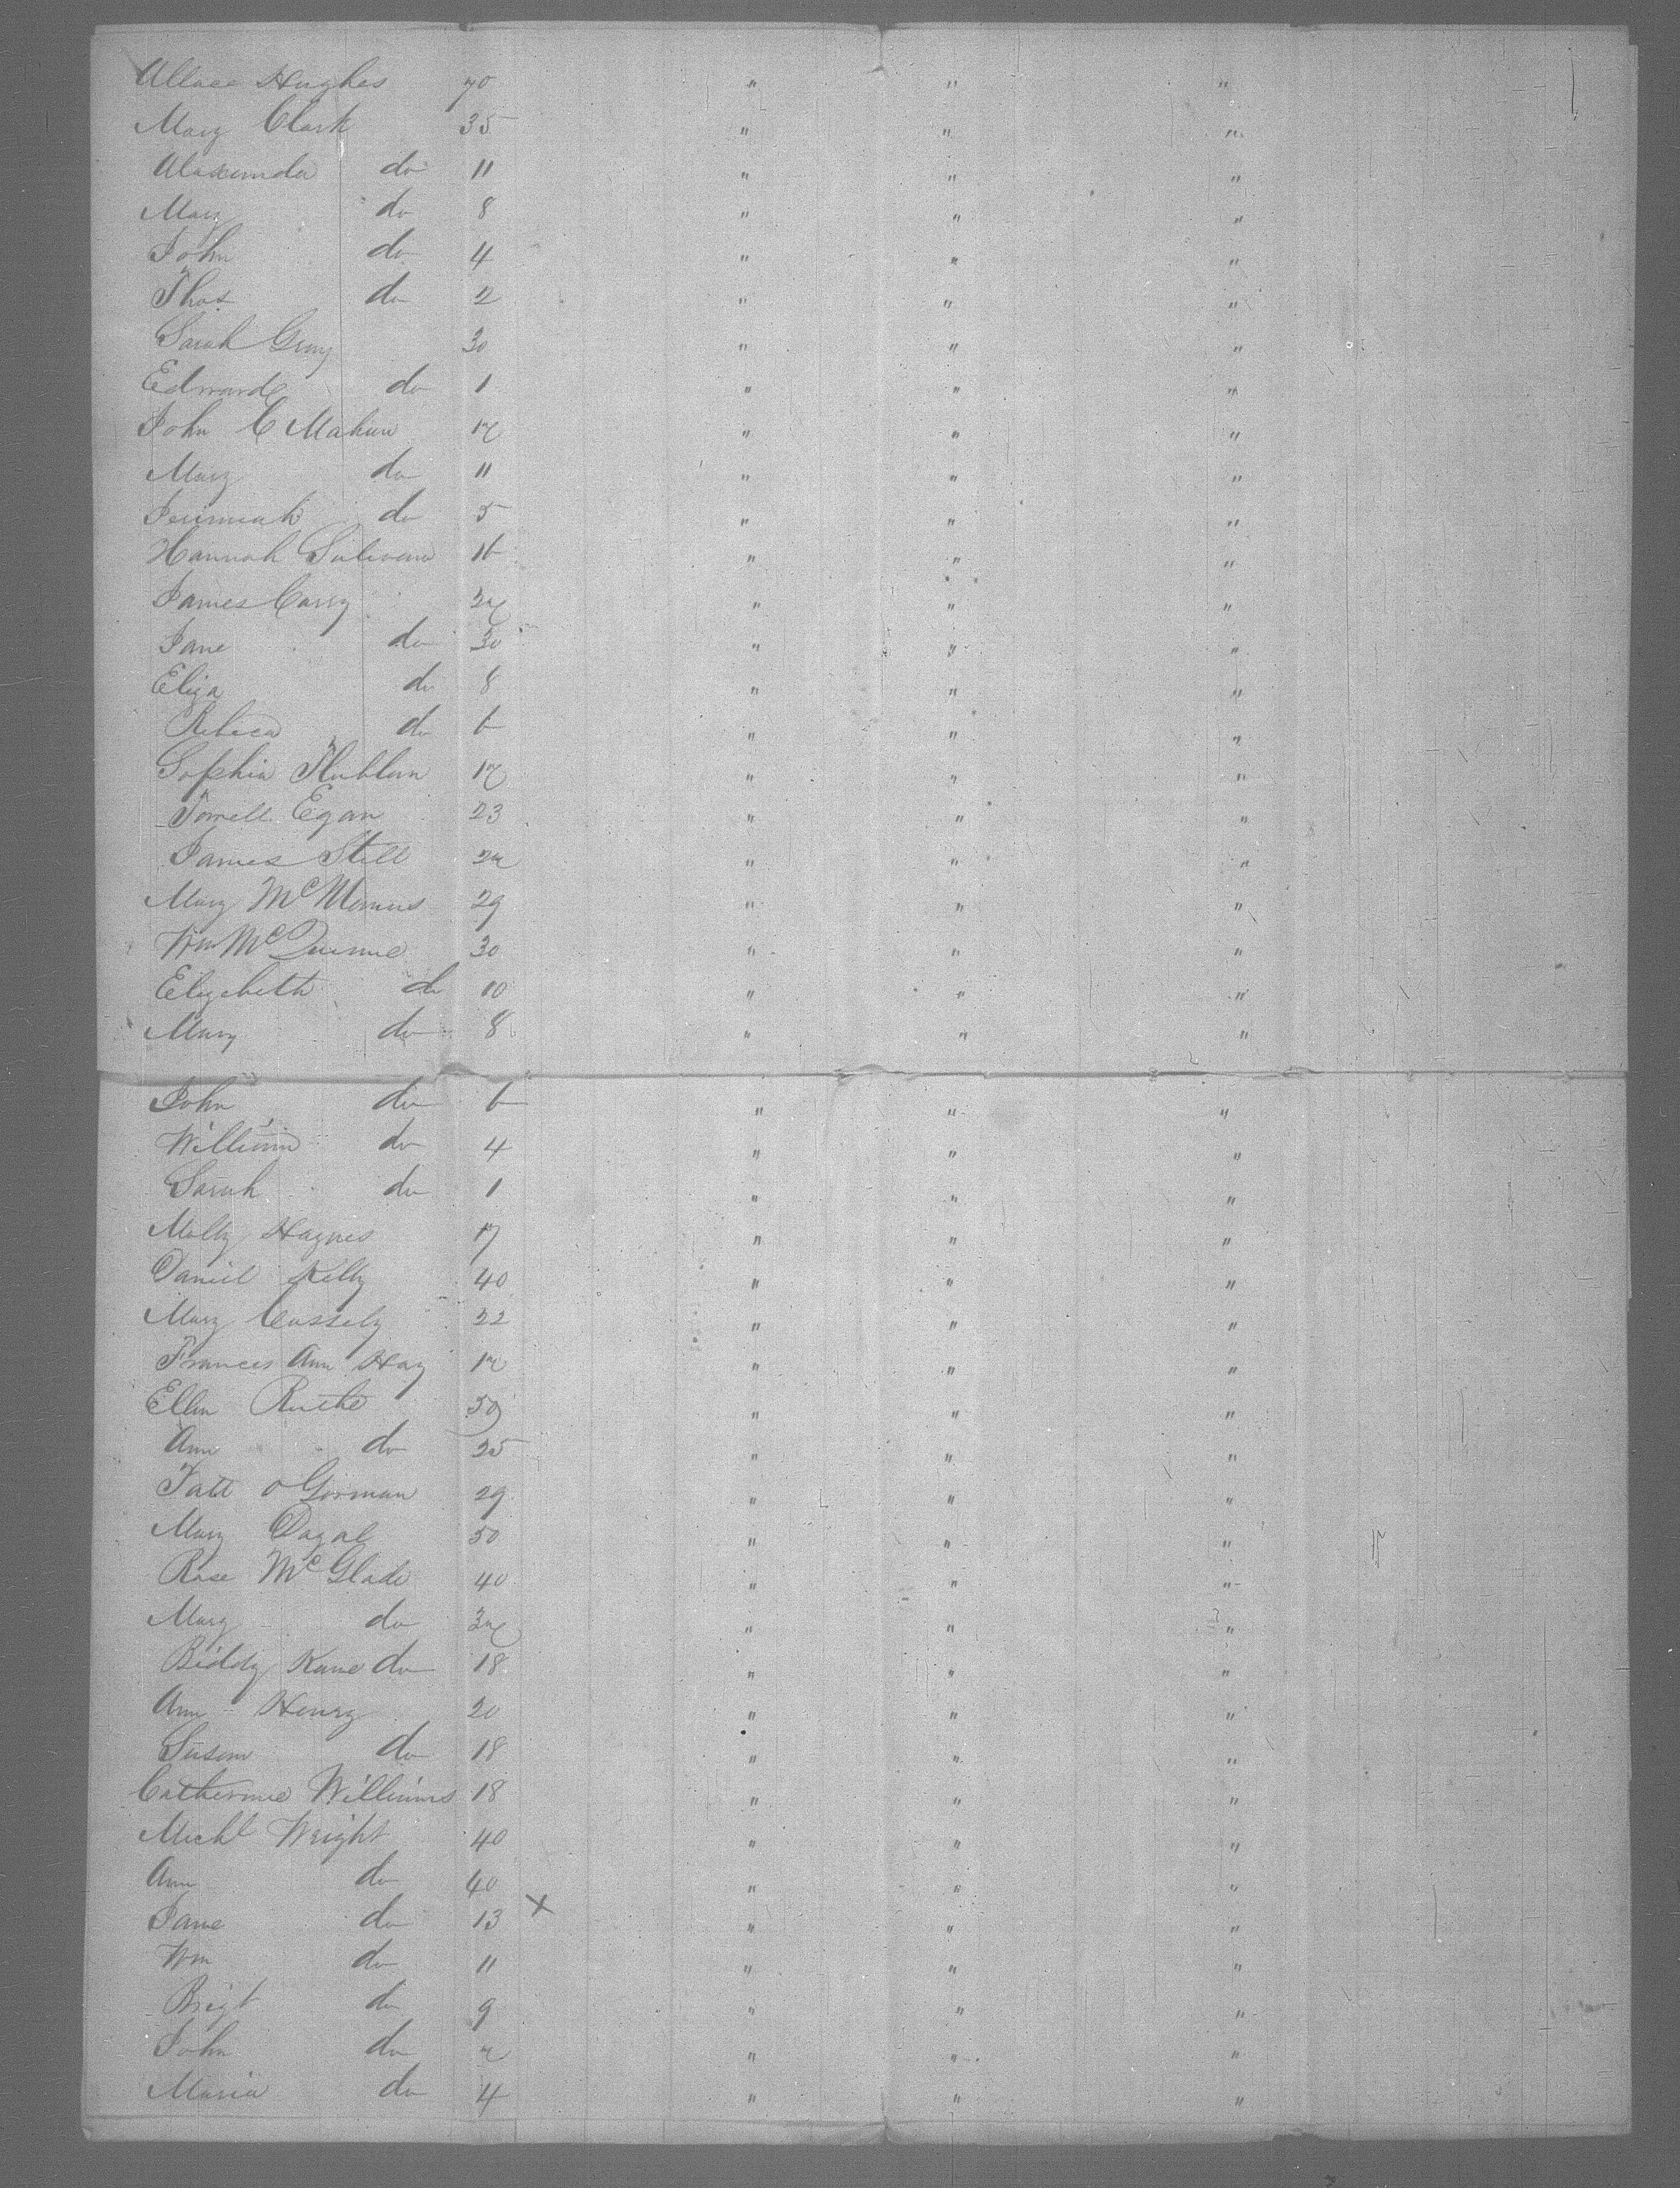 Hughes 70 " " "
Mary Clark 35 " " "
Alaxander do 11 " " "
Mary do 8 " " "
John do 4 " " "
Thos do 2 " " "
Sarah Gray 30 " " "
Edward do 1 " " "
John C Mahun 17 " " "
Mary do 11 " " "
Jerimiah do 5 " " "
Hannah Sulivan 16 " " "
James Carry 27 " " "
Jane do 30 " " "
Eliza do 8 " " "
Rebeca do 6 " " "
Sophia 17 " " "
Egan 23 " " "
James Still 27 " " "
Mary McManus 29 " " "
Wm McQuinne 30 " " "
Elizebeth do 10 " " "
Mary do 8 " " "
John do 6 " " "
William do 4 " " "
Sarah do 1 " " "
Molly Haynes 17 " " "
Daniel Kelly 40 " " "
Mary Cassely 22 " " "
Frances Ann Hay 17 " " "
Ellen 50 " " "
Ann do 25 " " "
Patt o Gorman 29 " " "
Mary 50 " " "
Rose McGlade 40 " " "
Mary do 37 " " "
Biddy Kane do 18 " " "
Ann Henry 20 " " "
Susan do 18 " " "
Catherine Williams 18 " " "
Michl Wright 40 " " "
Ann do 40 " " "
Jane do 13 x " " "
Wm do 11 " " "
Brigt do 9 " " "
John do 7 " " "
Maria do 4 " " "